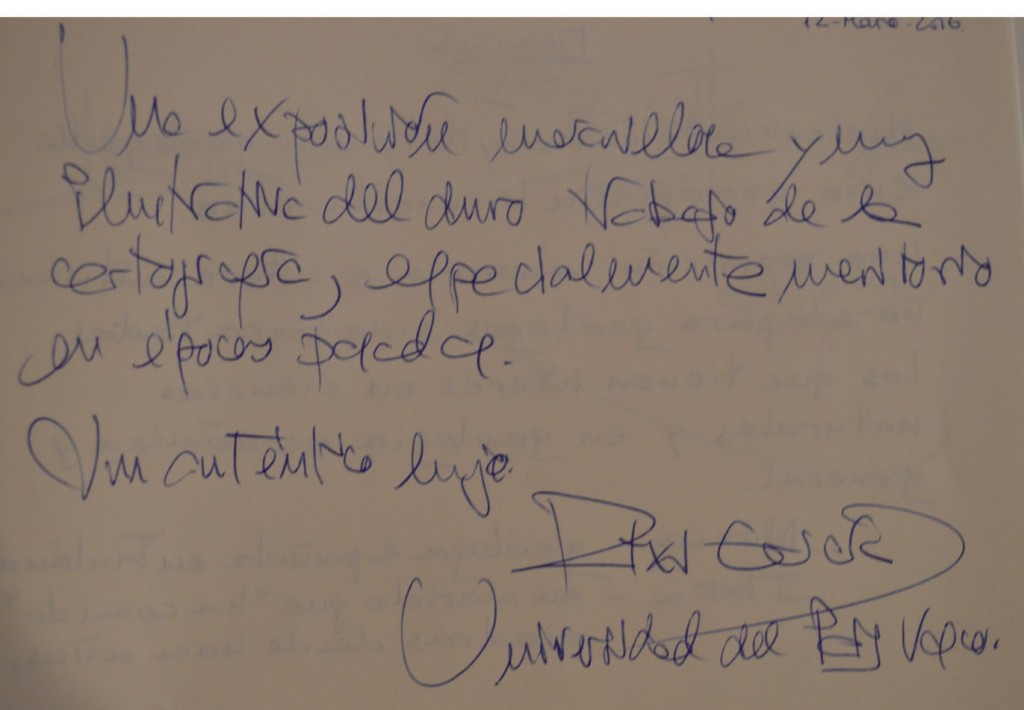 12-Marzo-2016
Una exposición maravillosa y muy
ilustrativa del duro trabajo de la
cartografía, especialmente meritorio
en épocas pasadas.
Un auténtico lujo.
Universidad del País Vasco.